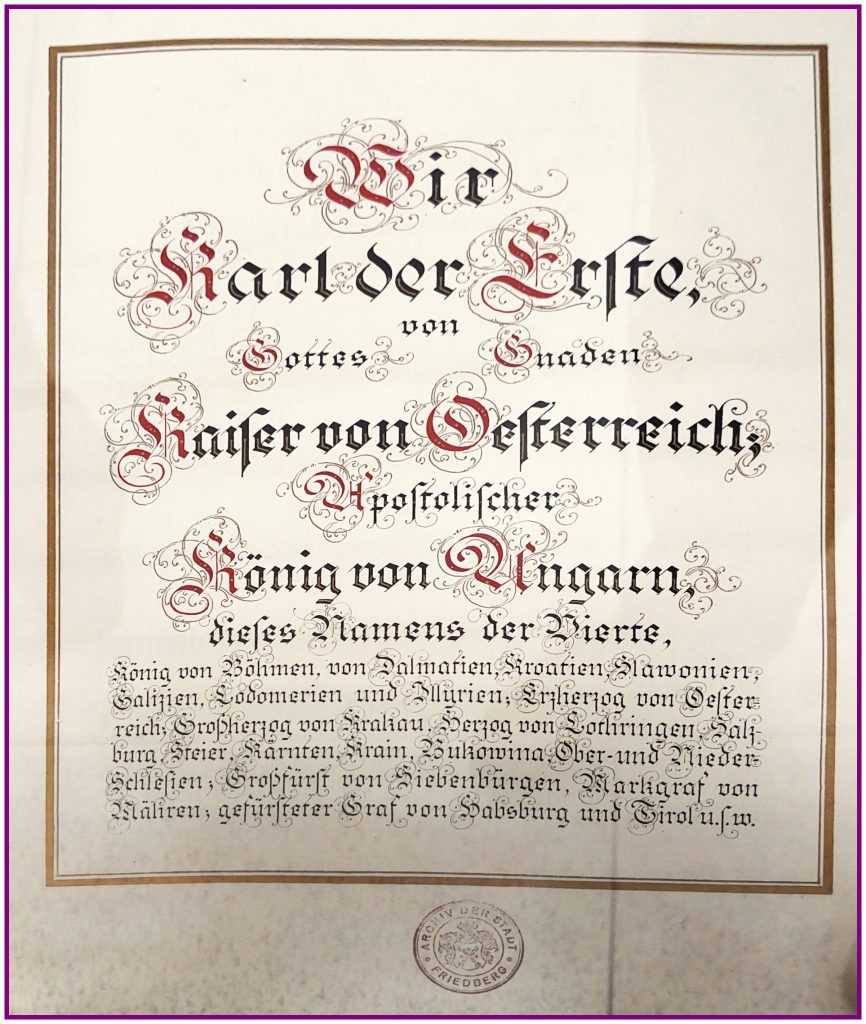 Wir
Karl der Erste,
von
Gottes Gnaden
Kaiser von Oesterreich;
Apostolischer
König von Ungarn,
dieses Namens der Vierte,
König von Böhmen, von Dalmatien, Kroatien, Slawonien,
Galizien, Lodomerien und Illyrien; Erzherzog von Oester-
reich; Großherzog von Krakau, Herzog von Lothringen, Salz-
burg, Steier, Kärnten, Krain, Bukowina, Ober- und Nieder-
Schlesien; Großfürst von Siebenbürgen, Markgraf von
Mähren; gefürsteter Graf von Habsburg und Tirol u.s.w.
ARCHIV DER STADT
FRIEDBERG